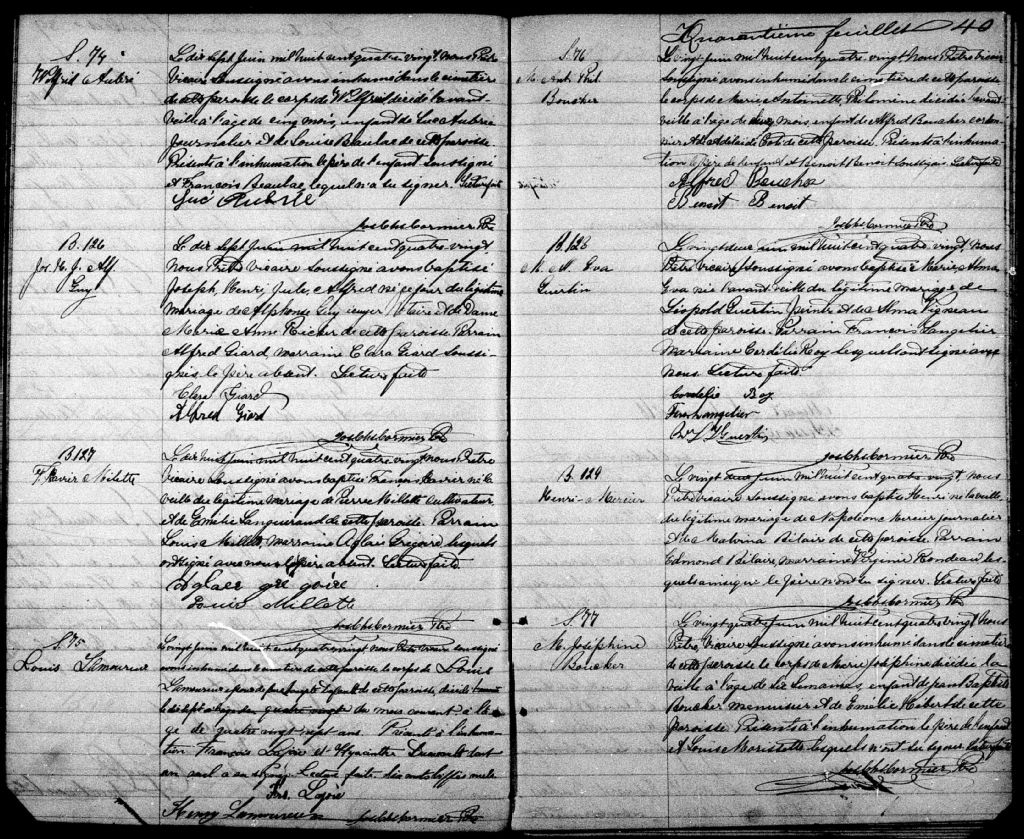 S. 74
Wilfrid Aubri
Le dix sept juin mil huit cent quatre vingt, nous Prêtre
Vicaire soussigné avons inhumé dans le cimetière
de cette paroisse le corps de Wilfrid décédé l'avant-
veille à l'age de cinq mois, enfant de Luc Aubrie
journalier et de Louise Beaulac de cette paroisse.
Présents à l'inhumation le père de l'enfant soussigné
et François Beaulac lequel n'a su signer. Lecture faite
Luc Aubrie
Jos Chs Cormier Ptre
B. 126
Jos. H. J. Alf.
Guy
Le dix sept juin mil huit cent quatre vingt,
nous Prêtre vicaire soussigné avons baptisé
Joseph, Henri, Jule, Alfred né ce jour du légitime
mariage de Alphonse Guy écuyer Notaire et de Dame
Marie Anne Richer de cette paroisse Parrain
Alfred Giard, marraine Clara Giard soussi-
gnés le père absent. Lecture faite
Clara Giard
Alfred Giard
Jos Chs Cormier Ptre
B 127
F. Xavier Milette
Le dix huit juin mil huit cent quatre vingt nous Prêtre
Vicaire soussigné avons baptisé François Xavier né la
veille du légitime mariage de Pierre Millette cultivateur
et de Emélie de cette paroisse. Parrain
Louis Millette, marraine Aglaé Grégoire lesquels
ont signé avec nous le père absent. Lecture faite
Aglaee gré goire
Louis Millette
Jos Chs Cormier Ptre
S. 75
Louis Lamoureux
Le vingt juin mil huit cent quatre vingt nous Prêtre vicaire soussigné
avons inhumé dans le cimetière de cette paroisse le corps de Louis
Lamoureux époux de de cette paroisse décédé
le dix sept du mois courant à l'â-
ge de quatre vingt sept ans. Présents à l'inhuma-
tion François Lajoie et Hyacinthe
un seul a su signer Lecture faite. Six mots biffés nuls
Frs. Lajoie
Henry Lamoureux Jos Chs Cormier Ptre
Quarantième feuillet 40
S. 76
M. Ant. Phil.
Boucher
Le vingt juin mil huit cent quatre vingt nous Prêtre vicaire
soussigné avons inhumé dans le cimetière de cette paroisse
le corps de Marie Antoinette, Philomine décédée l'avant
veille à l'age de mois, enfant de Alfred Boucher cordon-
nier et de Adélaïde Coté de cette paroisse. Présents à l'inhuma-
tion le père de l'enfant et Benoit Benoit soussignés. Lecture faite
Alfred Boucher
Benoit Benoit
Jos Chs Cormier Ptre
B. 128
M. A. Eva
Guertin
Le vingt deux juin mil huit cent quatre vingt, nous
Prêtre vicaire soussigné avons baptisé Marie, Alma
Eva née l'avant veille du légitime mariage de
Léopold Guertin peintre et de Alma Vigneau
de cette paroisse. Parrain François Langelier
Marraine Cordélie Roy lesquels ont signé avec
nous. Lecture faite.
Cordelie Roy
Frs. Langelier
Guertin
Jos Chs Cormier Ptre
B. 129
Henri Mercier
Le vingt juin mil huit cent quatre vingt, nous
Prêtre Vicaire soussigné avons baptisé Henri né la veille,
du légitime mariage de Napoléon Mercier journalier
et de Malvina Hilaire de cette paroisse. Parrain
Edmond Hilaire, marraine Virginie Rondeau les-
quels ainsi que le père n'ont su signer. Lecture faite
Jos Chs Cormier Ptre
S. 77
M. Joséphine
Boucher
Le vingt quatre juin mil huit cent quatre vingt nous
Prêtre Vicaire soussigné avons inhumé dans le cimetière
de cette paroisse le corps de Marie Joséphine décédée la
veille à l'age de six semaines, enfant de Jean Baptiste
Boucher menuisier et de Emélie Hébert de cette
paroisse. Présents à l'inhumation le père de l'enfant
et Louis lesquels n'ont su signer. Lecture faite
Jos Chs Cormier Ptre